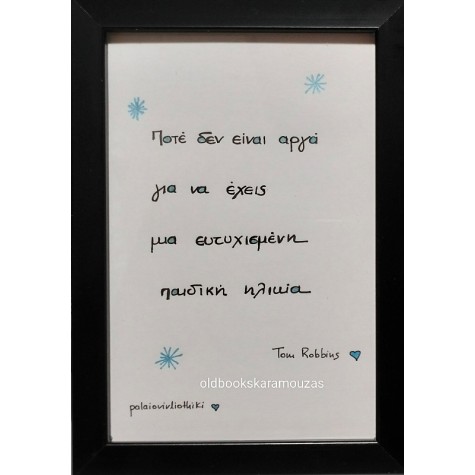 Ποτέ δεν είναι αργά
για να έχεις
μια ευτυχισμένη
παιδική ηλικία
Tom Robbins
oldbookskaramouzas
palaiovivliothiki